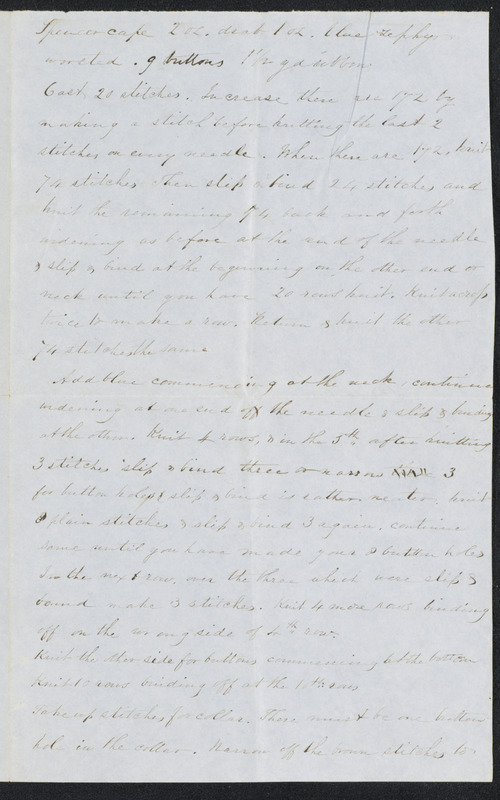 Spencer cape 2 oz. drab 1 oz. blue zephyr
worsted. 9 buttons 1 1/2 yd ribbon
Cast 20 stitches. Increase there are 172 by
making a stitch before knitting the last 2
stitches on every needle. When there are 172. Knit
74 stitches then slip & bind 24 stitches and
knit the remaining 74 back and forth
widening as before at the end of the needle
& slip & bind at the beginning on the other end or
neck until you have 20 rows knit. Knit across
twice to make a row. Return & knit the other
74 stitches the same
Add blue commencing at the neck continue
widening at one end of the needle & slip & binding
at the other. Knit 4 rows, & in the 5th after knitting
3 stitches slip & bind three or narrow 3
for button holes slip & bind is rather neater. Knit
8 plain stitches & slip & bind 3 again. continue
same until you have made your 8 button holes
In the next row, over the three which were slip &
bound make 3 stitches. Knit 4 more rows binding
off on the wrong side of 4th row.
Knit the other side for buttons commencing at the bottom
Knit 10 rows binding off at the 10th row
Take up stitches for collar. There must be one button
hole in the collar. Narrow off the stitches to